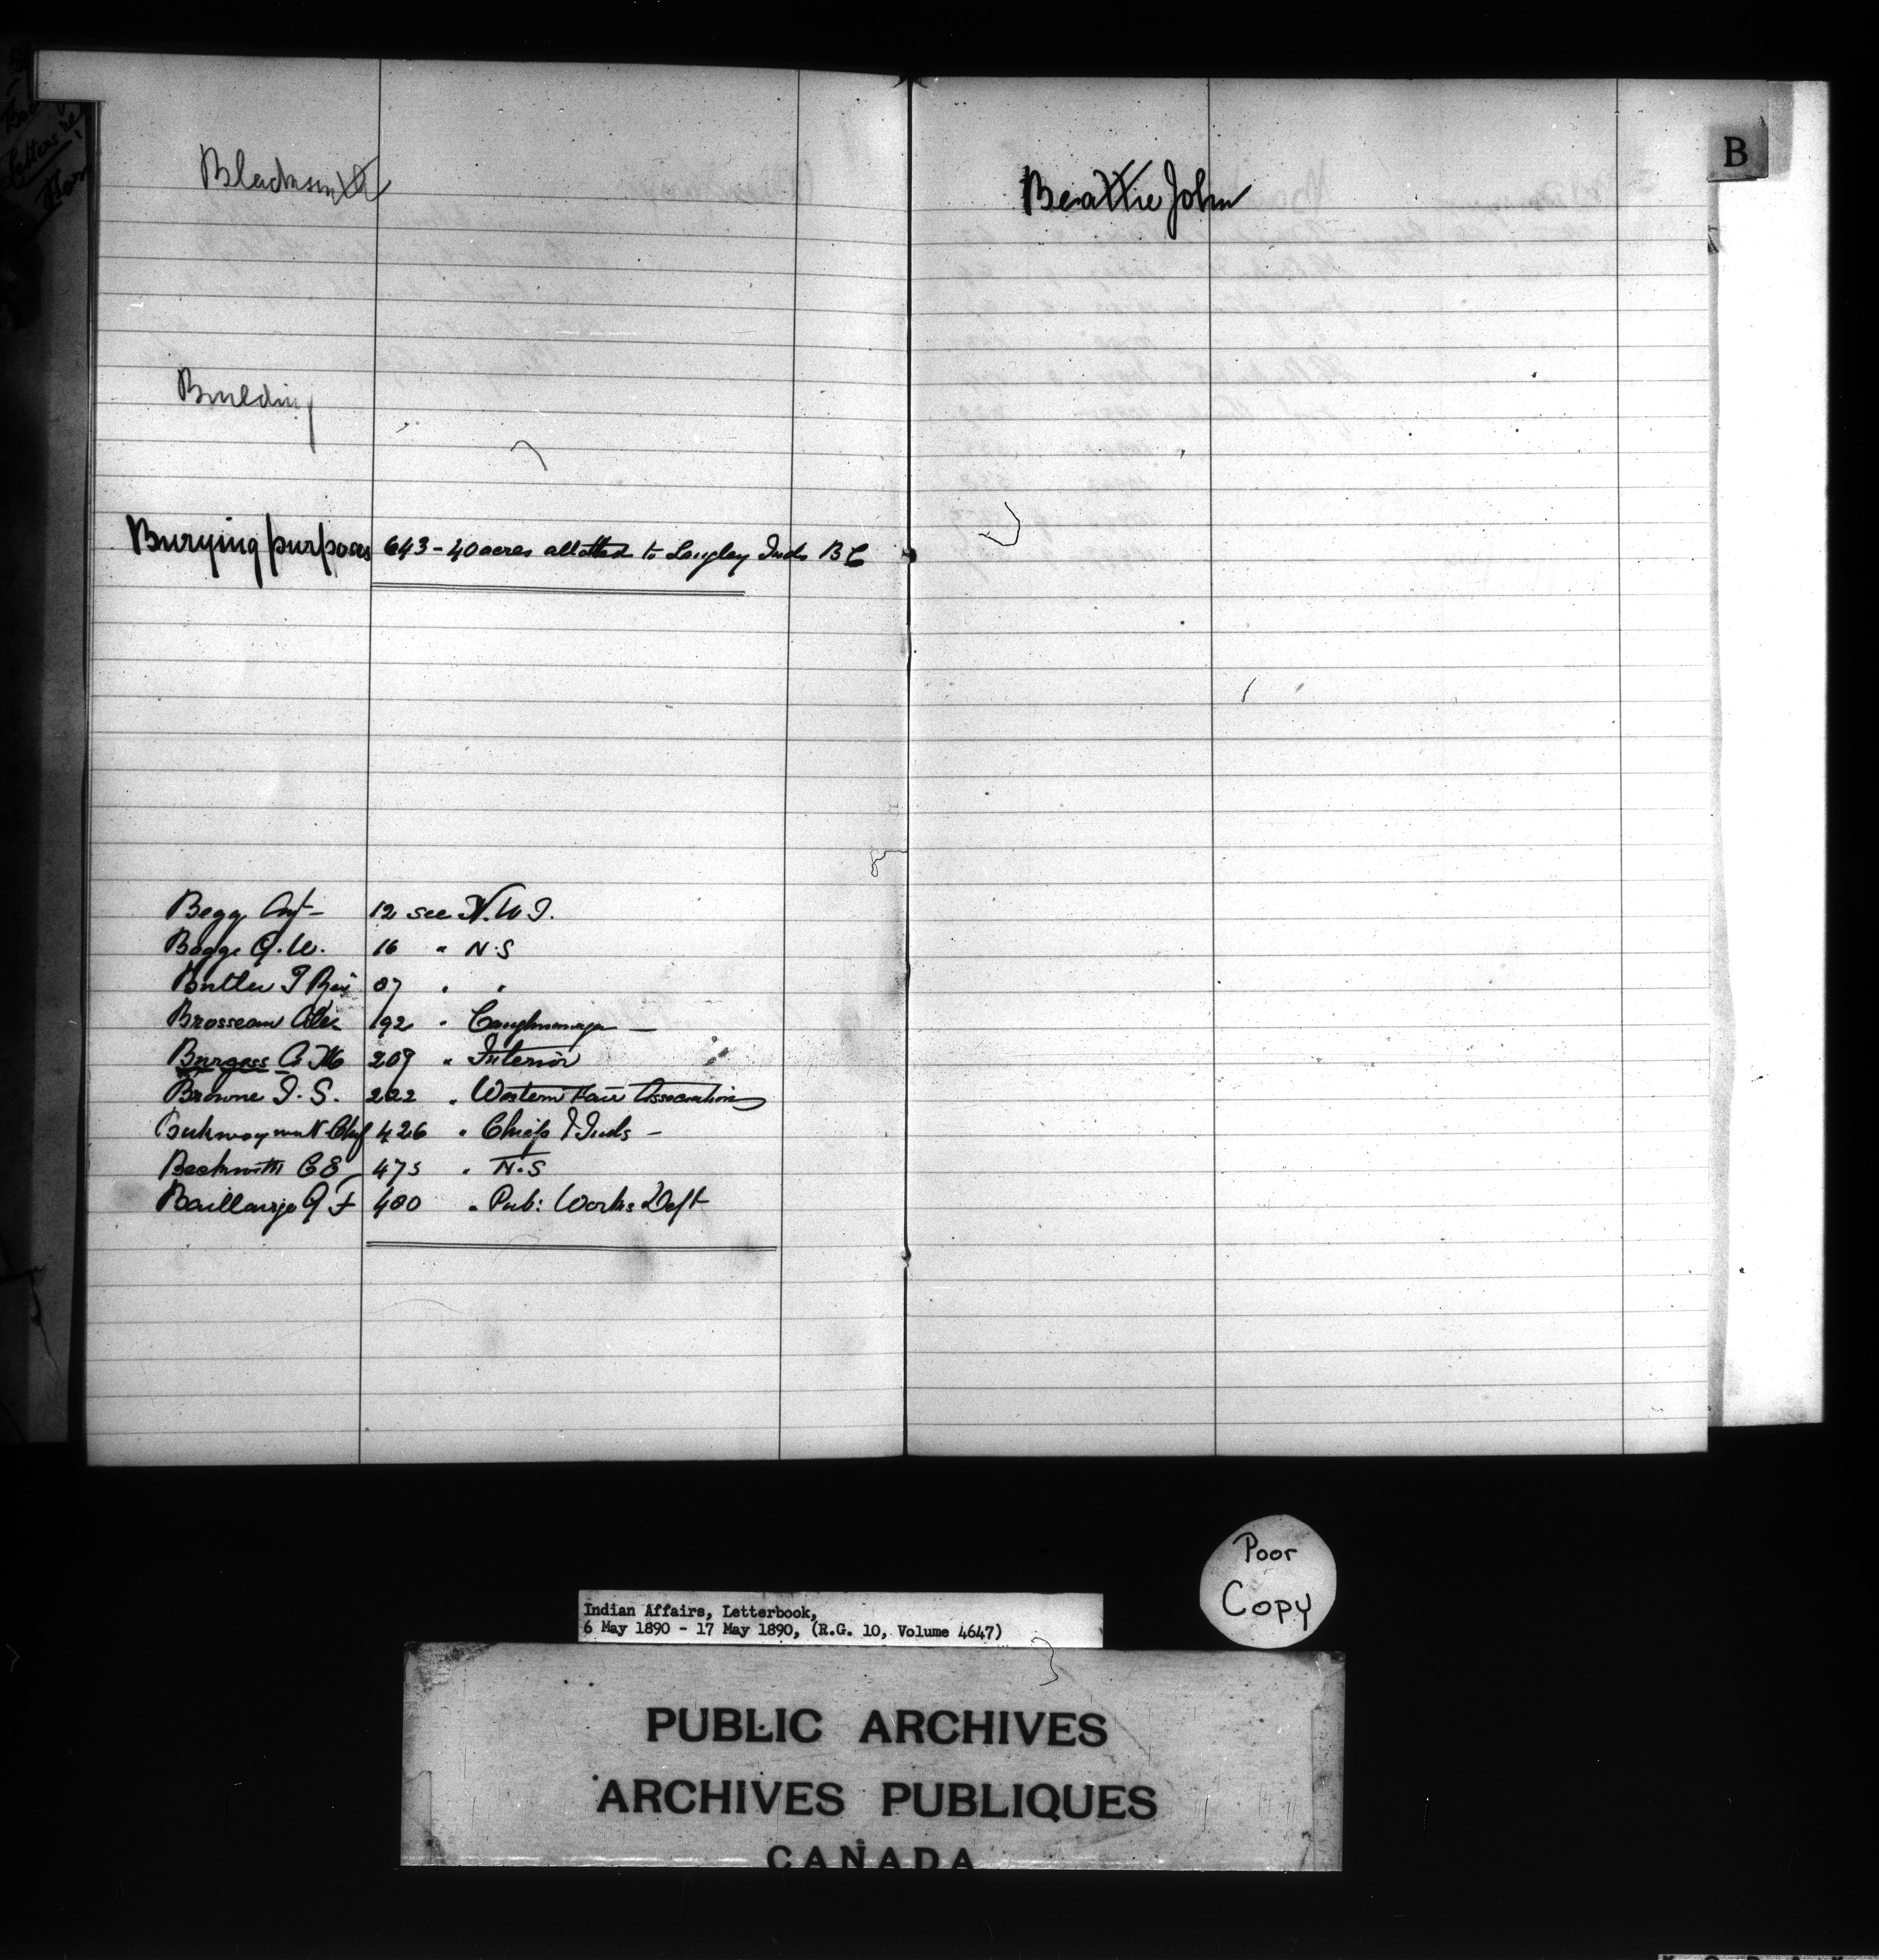 B
Blacksmith
Beattie John
Building
Burying purposes 643 - 40 acres allotted to Langley Inds B C
Begg Agt - 12 see N.W.T.
Boggs G.W. 16 " N.S
Butler T Rev 87 " "
Brosseau Alex 192 " Caughnawaga -
Burgess A M 209 " Interior
Browne T. S. 222 " Western Fair Association
Chief 426 " Chiefs & Inds -
Beckwith C E 475 " N.S
Baillairge G F 480 " Pub: Works Dept
Poor
Copy
Indian Affairs, Letterbook,
6 May 1890 - 17 May 1890, (R.G. 10, Volume 4647)
PUBLIC ARCHIVES
ARCHIVES PUBLIQUES
CANADA